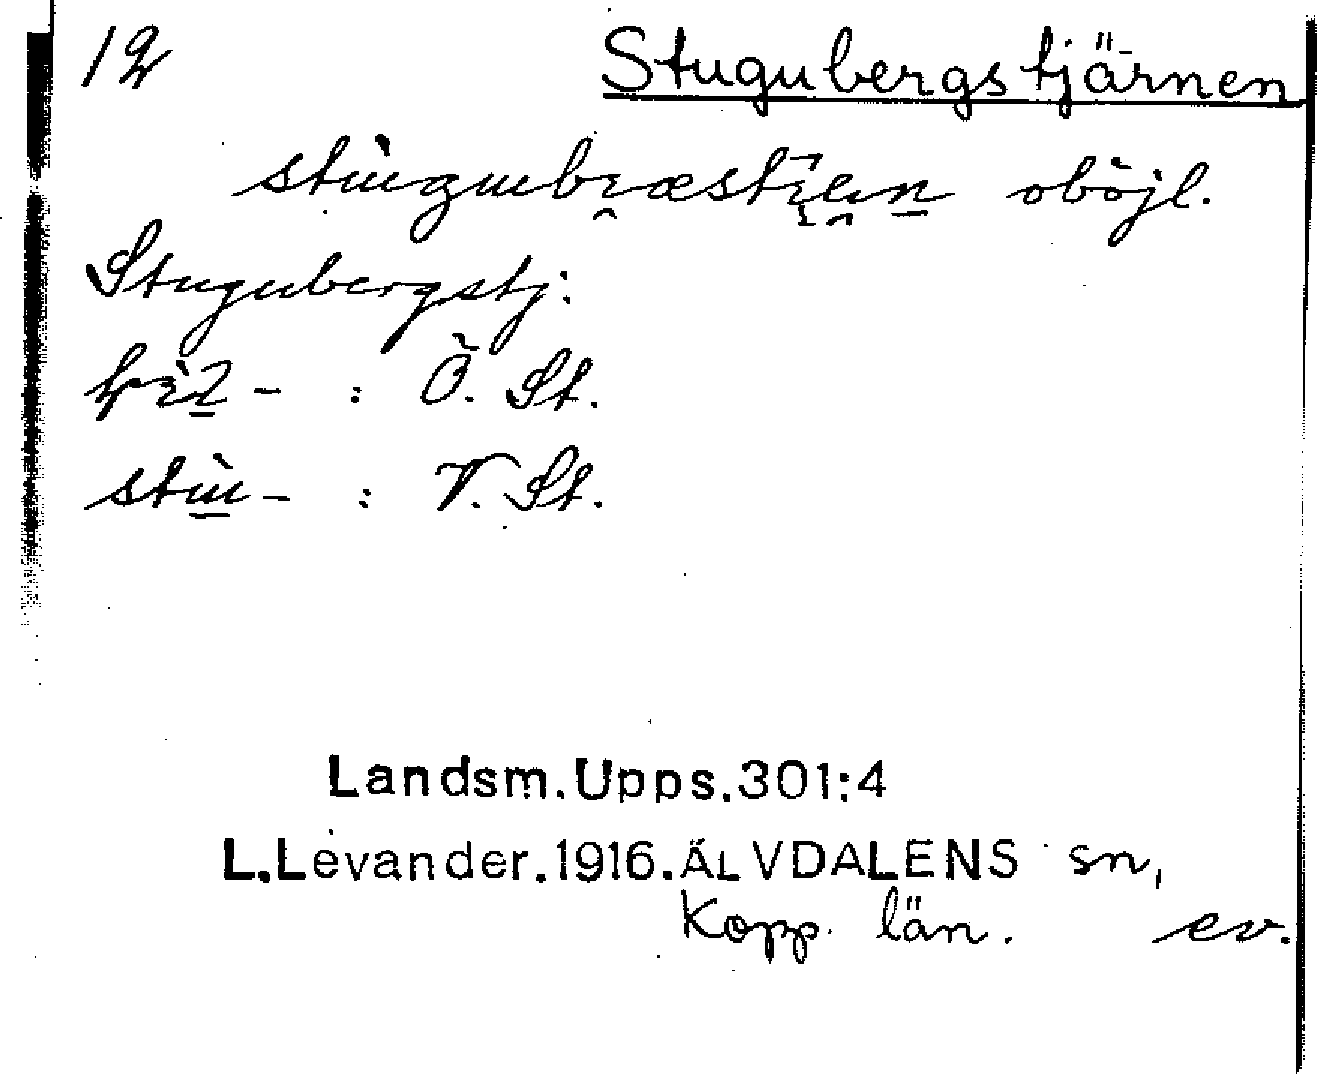 12 Stugubergstjärnen
oböjl.
Stugubergstj:
: Ö. St.
stu- : V. St.
Landsm.Upps.301:4
L.Levander.1916.ÄLVDALENS sn,
Kopp. län. ev.